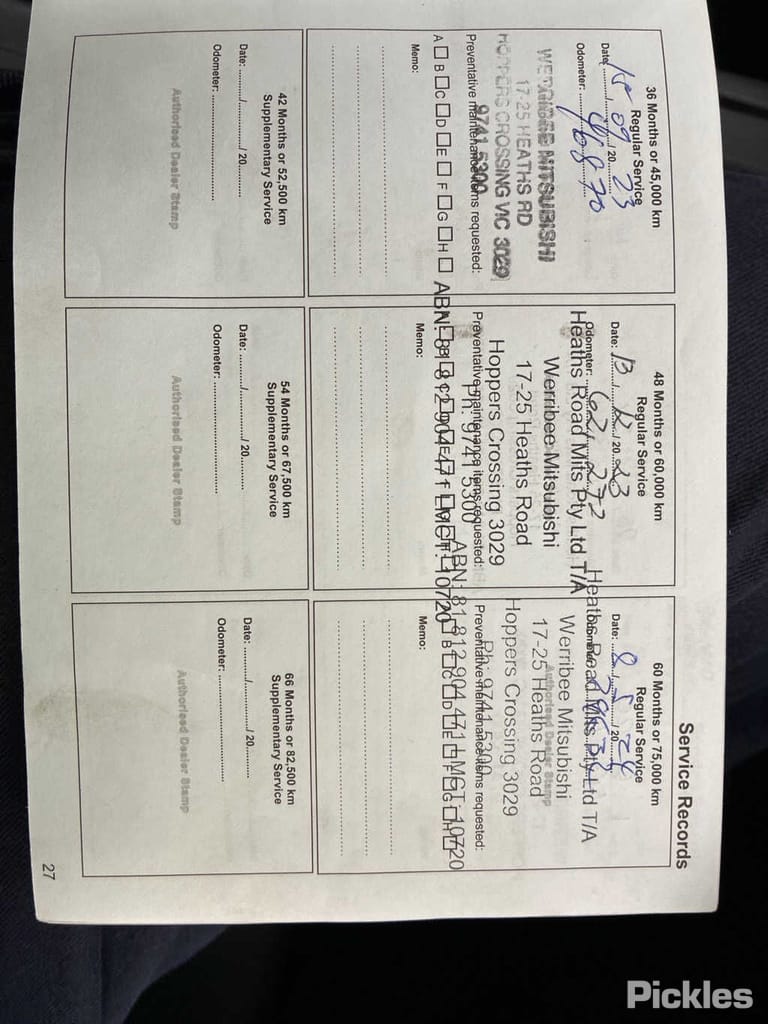 Service Records
36 Months or 45,000 km
Regular Service
Date: 15 / 09 / 20 23
Odometer:
WERRIBEE MITSUBISHI
17-25 HEATHS RD
HOPPERS CROSSING VIC 3029
9741 5300
Preventative maintenance items requested:
A B C D E F G H
Memo:
48 Months or 60,000 km
Regular Service
Date: 13 / 12 / 20 23
Odometer: 62 272
Heaths Road Mits Pty Ltd T/A
Werribee Mitsubishi
17-25 Heaths Road
Hoppers Crossing 3029
Ph: 9741 5300
Preventative maintenance items requested:
ABN: 81 812 904 471 LMCT: 10720
Memo:
60 Months or 75,000 km
Regular Service
Date: 8 / 5 / 20 24
Odometer:
Heaths Road Mits Pty Ltd T/A
Werribee Mitsubishi
Authorised Dealer Stamp
17-25 Heaths Road
Hoppers Crossing 3029
Ph: 9741 5300
Preventative maintenance items requested:
ABN: 81 812 904 471 LMCT: 10720
B C D E F G H
Memo:
42 Months or 52,500 km
Supplementary Service
Date: ........./........./ 20.........
Odometer:
Authorised Dealer Stamp
54 Months or 67,500 km
Supplementary Service
Date: ........./........./ 20.........
Odometer:
Authorised Dealer Stamp
66 Months or 82,500 km
Supplementary Service
Date: ........./........./ 20.........
Odometer:
Authorised Dealer Stamp
27
Pickles